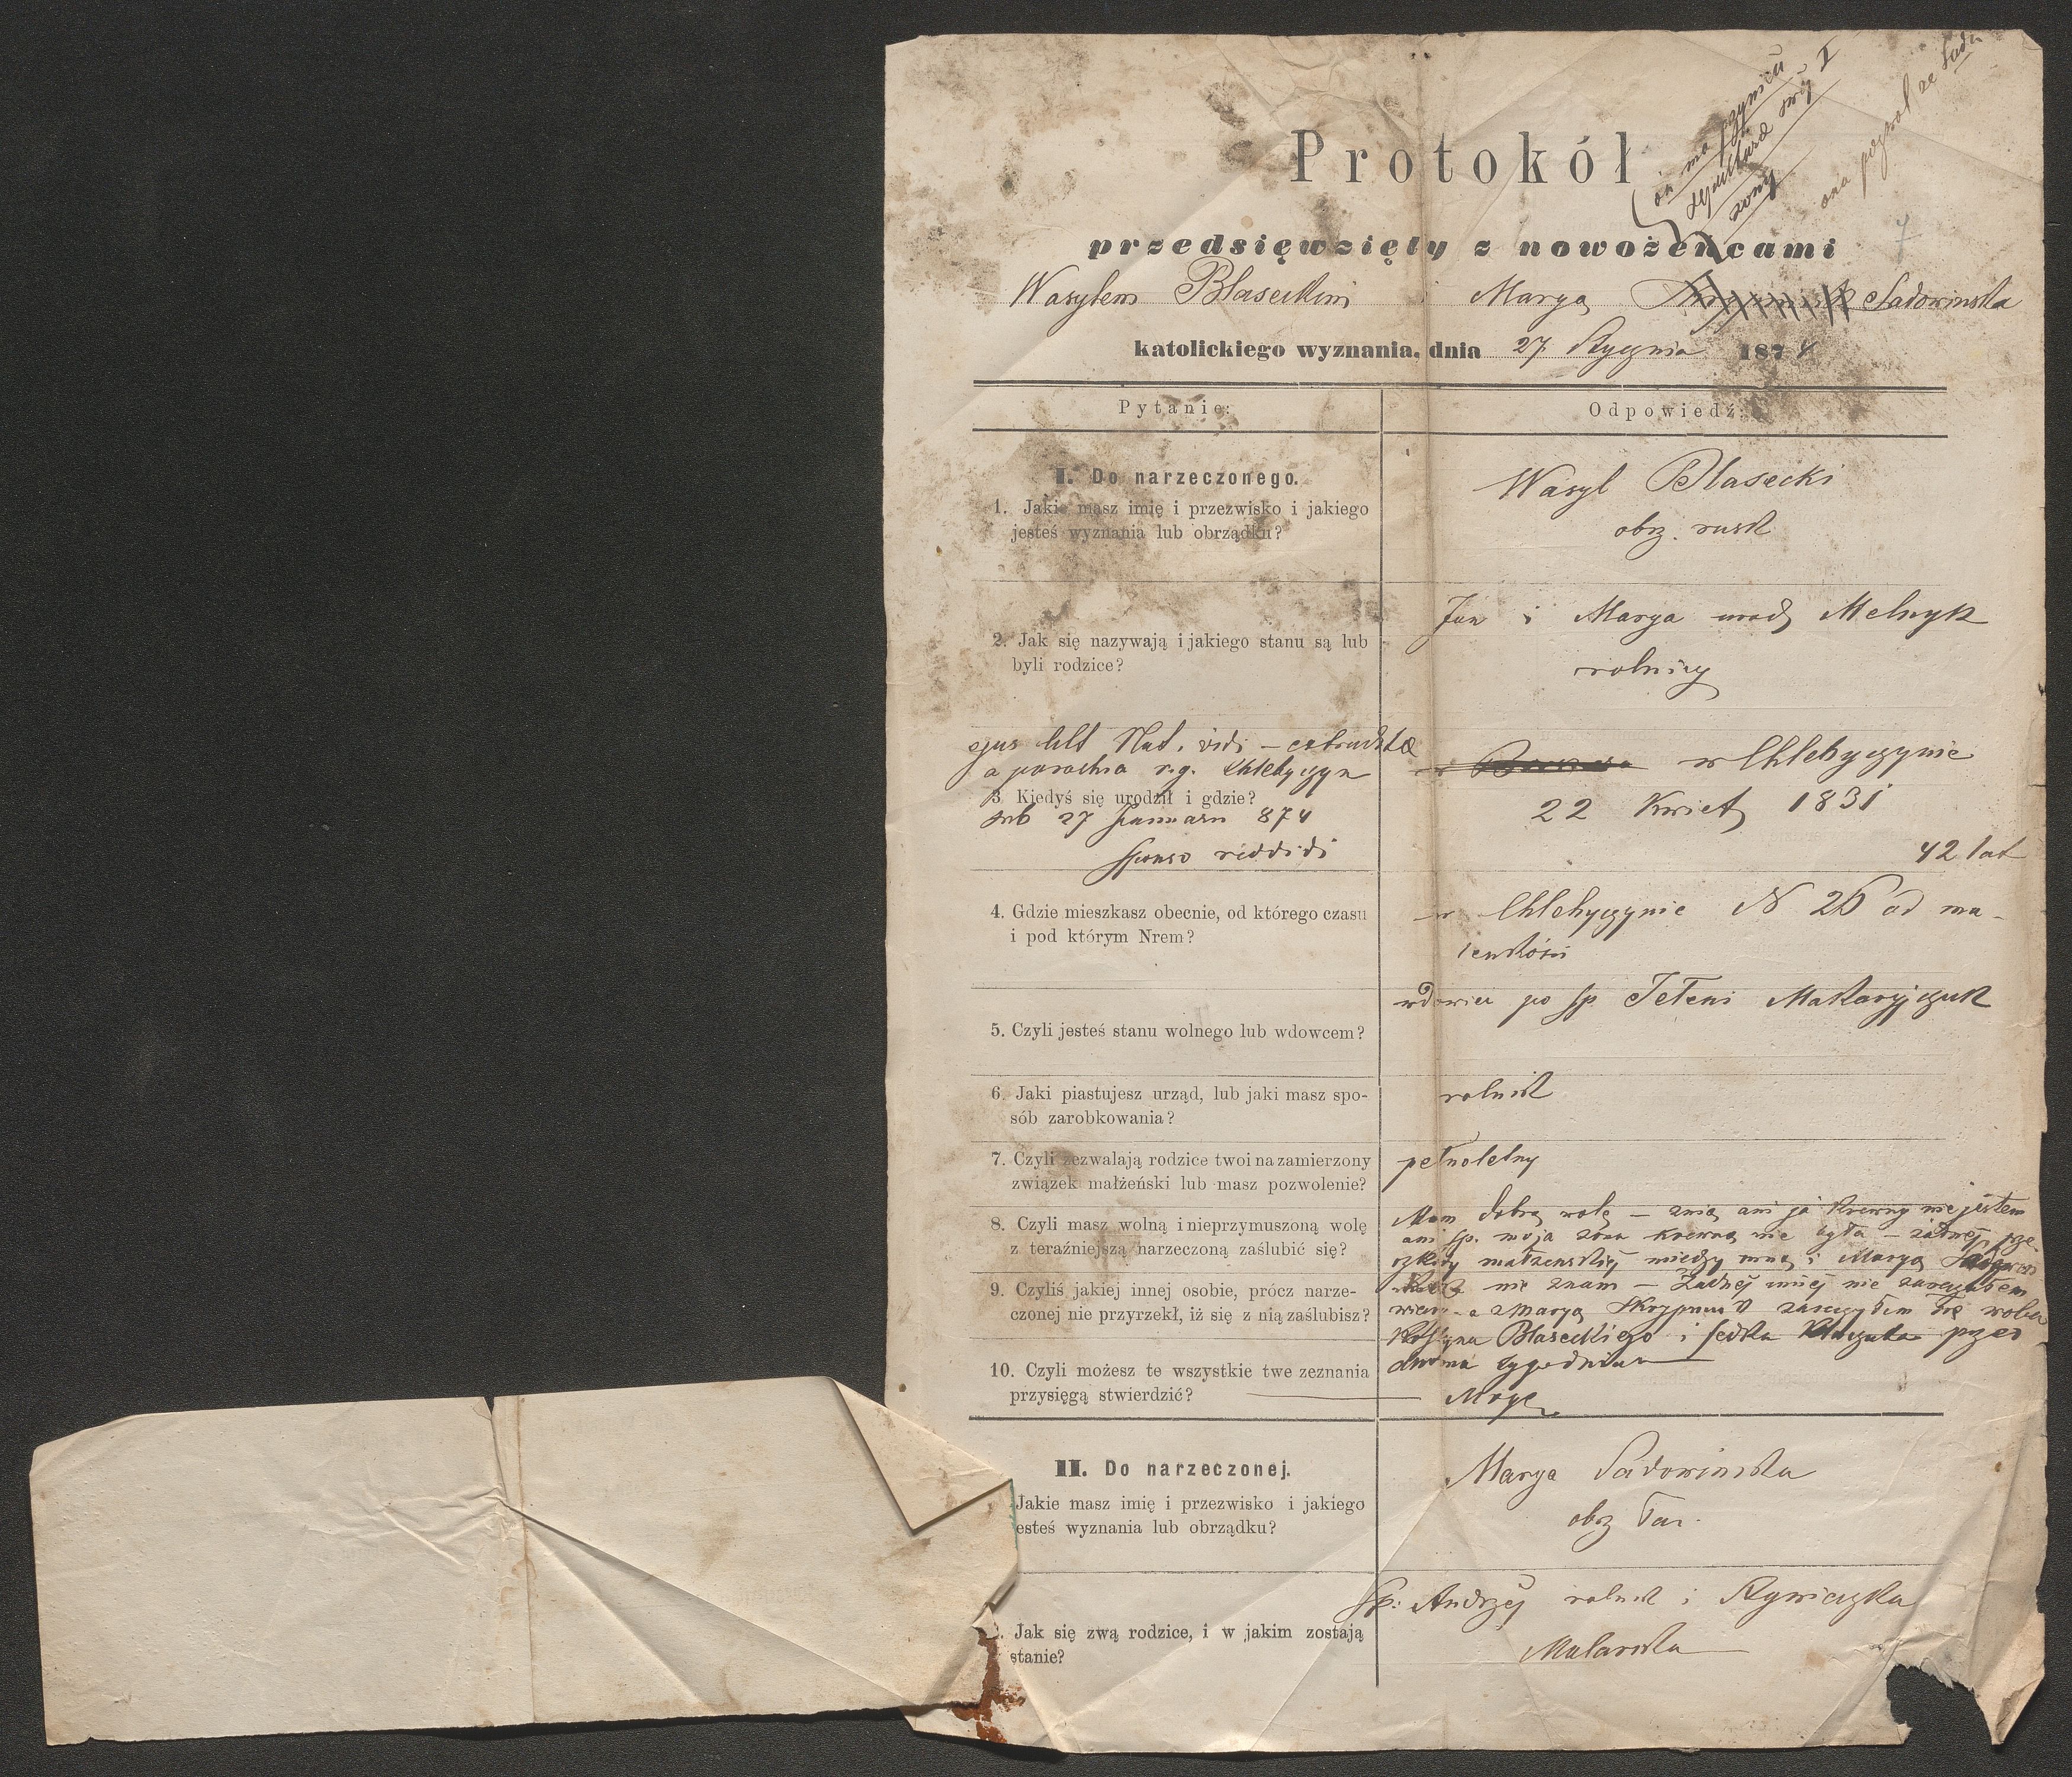 on ma
swej I
żony
ona
ze Sadu
Protokół
przedsięwzięty z nowożeńcami
7
Wasylem Błaseckim i Maryą Sadowinska
katolickiego wyznania, dnia 27 Stycznia 1874
Pytanie:
Odpowiedź:
I. Do narzeczonego.
1. Jakie masz imię i przezwisko i jakiego
jesteś wyznania lub obrządku?
Wasyl Błasecki
obrz. rusk
2. Jak się nazywają i jakiego stanu są lub
byli rodzice?
Jan i Marya urodz Melnyk
rolnicy
ejus litt Nat. vidi – extradata
a parochia r.g. Chlebyczyn
3. Kiedyś się urodził i gdzie?
sub 27 Januarii 874
sponso reddidi
w Chlebyczynie
22 Kwiet 1831
42 lat
4. Gdzie mieszkasz obecnie, od którego czasu
i pod którym Nrem?
w Chlebyczynie N 26 od ma-
leńkości
5. Czyli jesteś stanu wolnego lub wdowcem?
wdowiec po śp. Teteni Makaryjczuk
6. Jaki piastujesz urząd, lub jaki masz spo-
sób zarobkowania?
rolnik
7. Czyli zezwalają rodzice twoi na zamierzony
związek małżeński lub masz pozwolenie?
pełnoletny
8. Czyli masz wolną i nieprzymuszoną wolę
z teraźniejszą narzeczoną zaślubić się?
Mam dobrą wolę – z nią ani ja krewny nie jestem
ani śp. moja żona krewną nie była – żadnej prze-
szkody małżenskiej miedzy mną i Maryą
9. Czyliś jakiej innej osobie, prócz narze-
czonej nie przyrzekł, iż się z nią zaślubisz?
nie znam – Żadnej innej nie zaręczałem
wiary - a z Maryą Skrypniuk zaręczyłem się wobec
Błaseckiego i Fedka przed
dwoma tygodniami
10. Czyli możesz te wszystkie twe zeznania
przysięgą stwierdzić?
Mogę
II. Do narzeczonej.
Jakie masz imię i przezwisko i jakiego
esteś wyznania lub obrządku?
Marya Sadowinska
obrz łac.
Jak się zwą rodzice, i w jakim zostają
stanie?
Śp. Andrzej rolnik i
Malarska